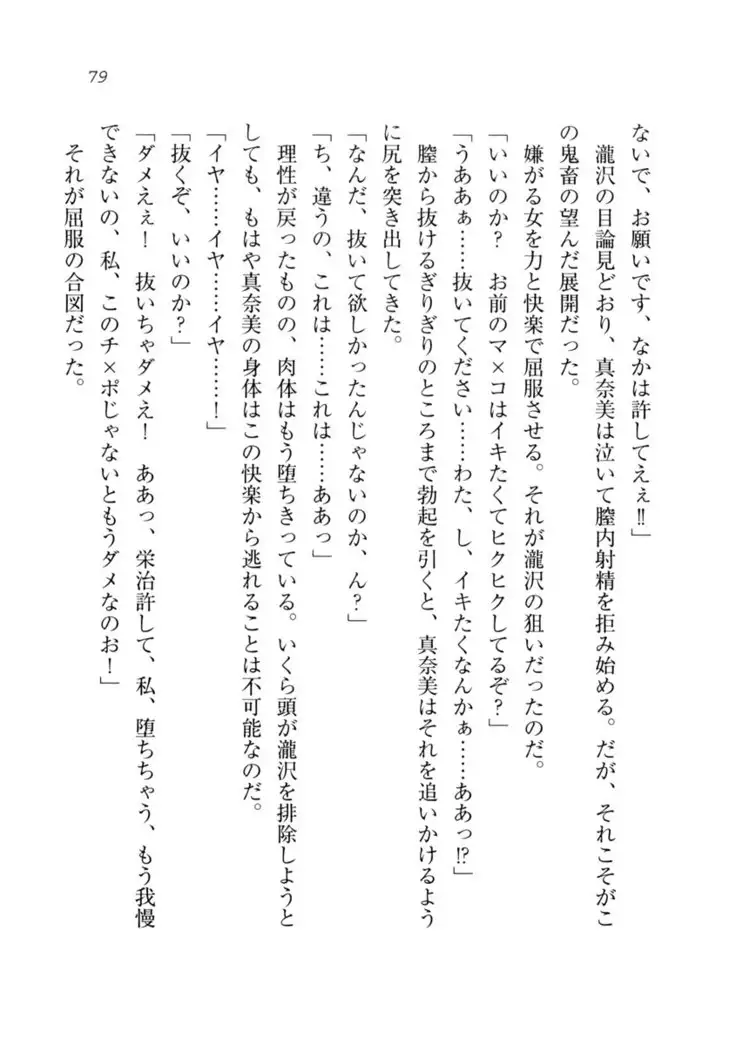 79
ないで、お願いです、なかは許してえぇ!!」
　瀧沢の目論見どおり、真奈美は泣いて膣内射精を拒み始める。だが、それこそがこ
の鬼畜の望んだ展開だった。
　嫌がる女を力と快楽で屈服させる。それが瀧沢の狙いだったのだ。
「いいのか？　お前のマ×コはイキたくてヒクヒクしてるぞ？」
「うああぁ……抜いてください……わた、し、イキたくなんかぁ……ああっ!?」
　膣から抜けるぎりぎりのところまで勃起を引くと、真奈美はそれを追いかけるよう
に尻を突き出してきた。
「なんだ、抜いて欲しかったんじゃないのか、ん？」
「ち、違うの、これは……これは……ああっ」
　理性が戻ったものの、肉体はもう堕ちきっている。いくら頭が瀧沢を排除しようと
しても、もはや真奈美の身体はこの快楽から逃れることは不可能なのだ。
「イヤ……イヤ……イヤ……！」
「抜くぞ、いいのか？」
「ダメえぇ！　抜いちゃダメえ！　ああっ、栄治許して、私、堕ちちゃう、もう我慢
できないの、私、このチ×ポじゃないともうダメなのお！」
　それが屈服の合図だった。